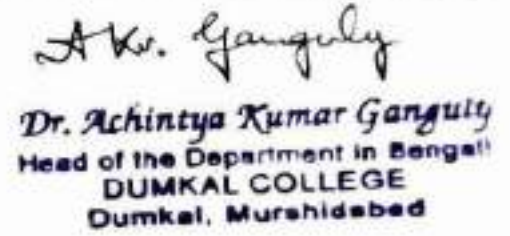 A Kr. Ganguly
Dr. Achintya Kumar Ganguly
Head of the Department in Bengali
DUMKAL COLLEGE
Dumkal, Murshidabad